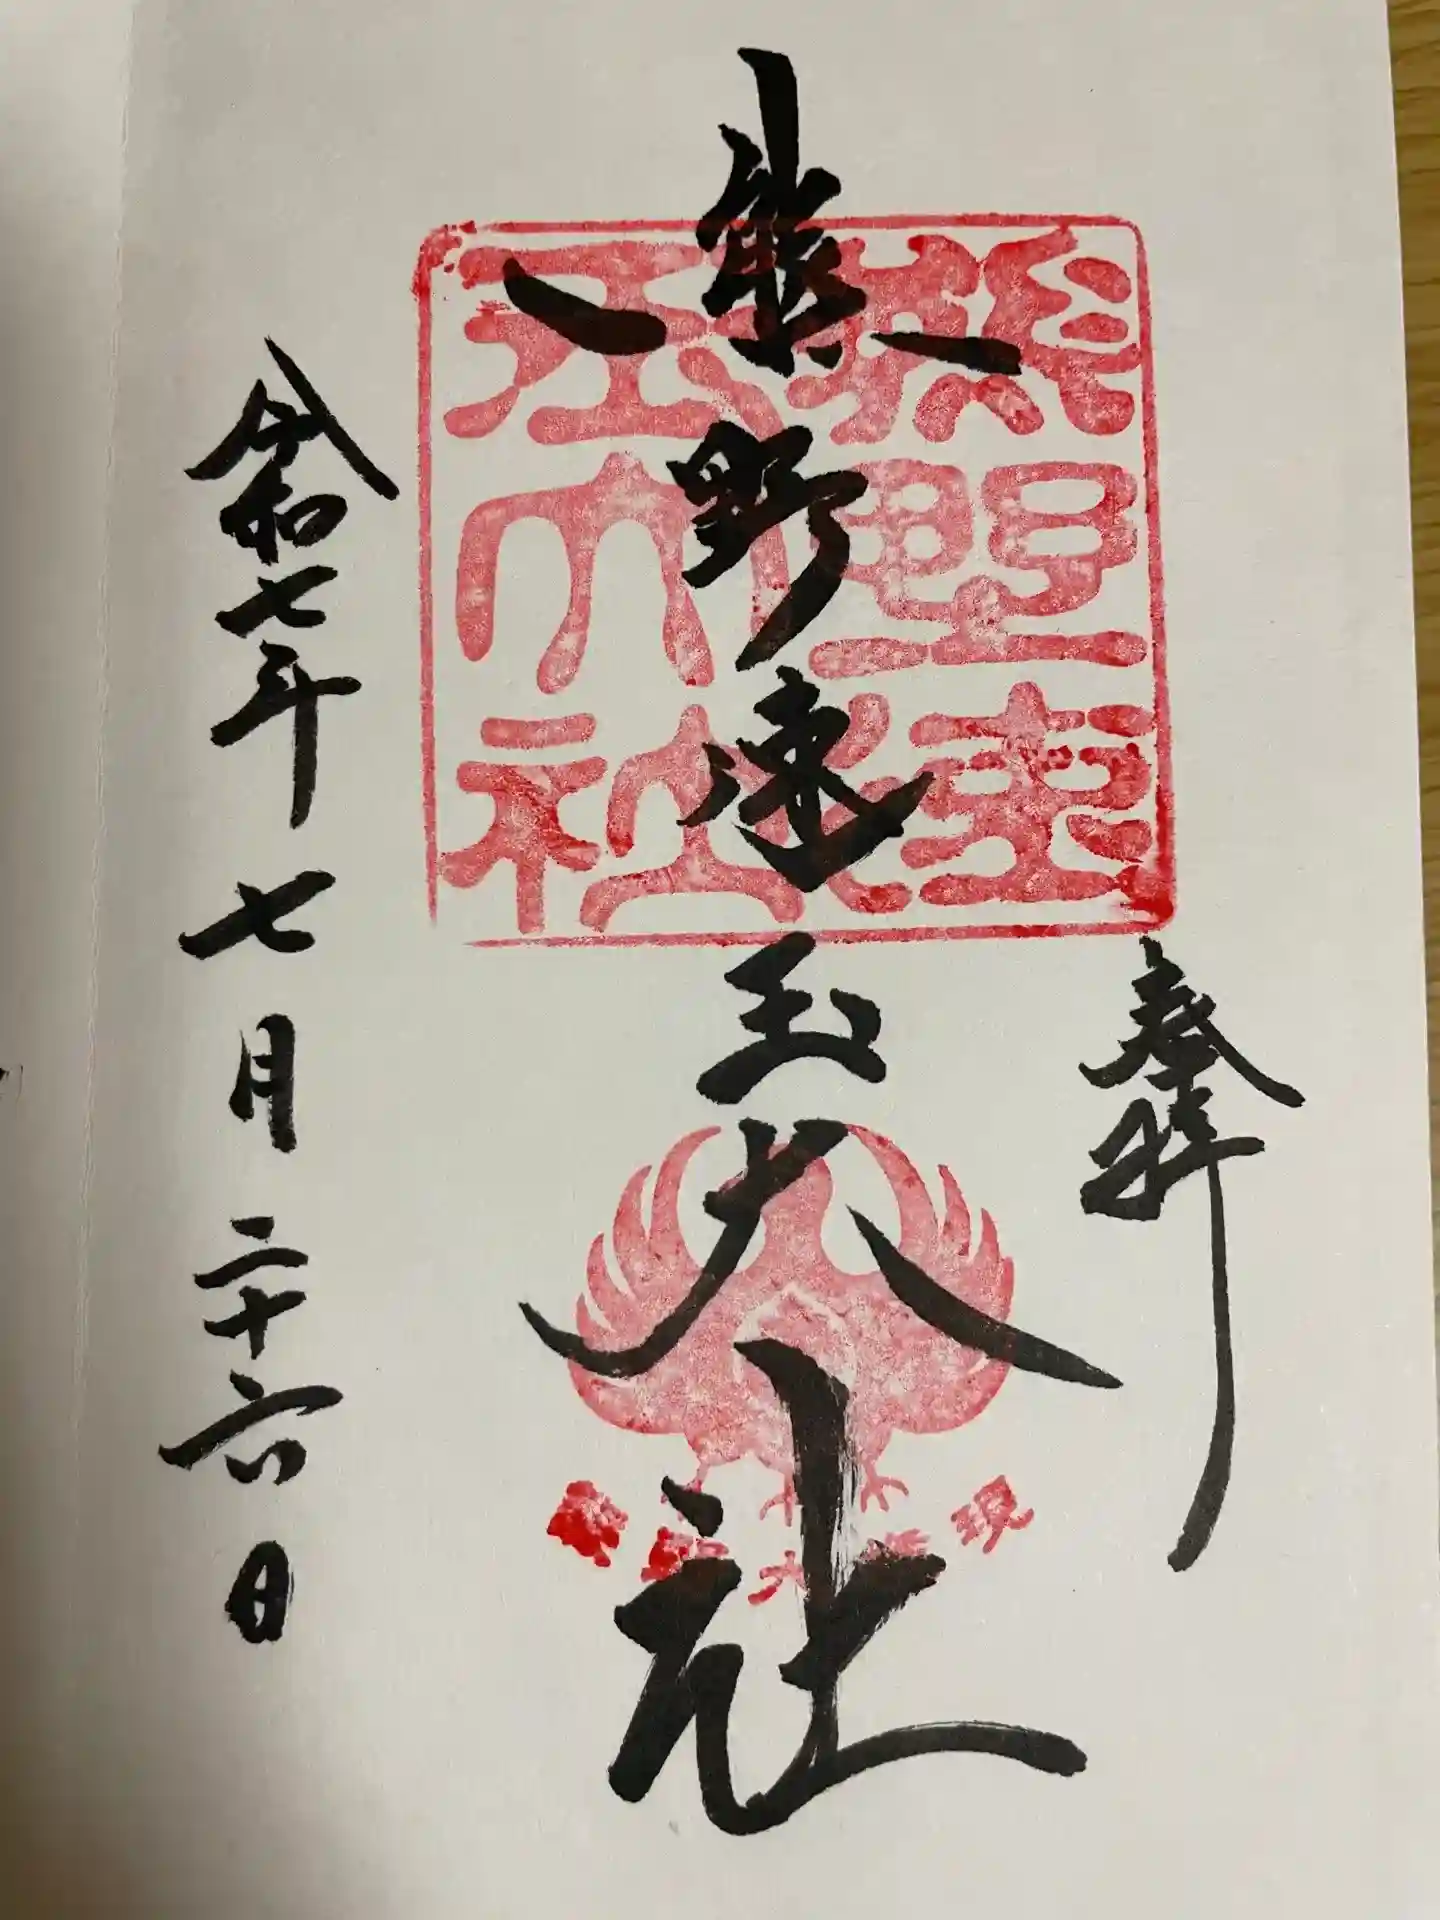 奉拝
熊野速玉大社
令和七年七月二十六日
熊野速
玉大社
熊野大権現